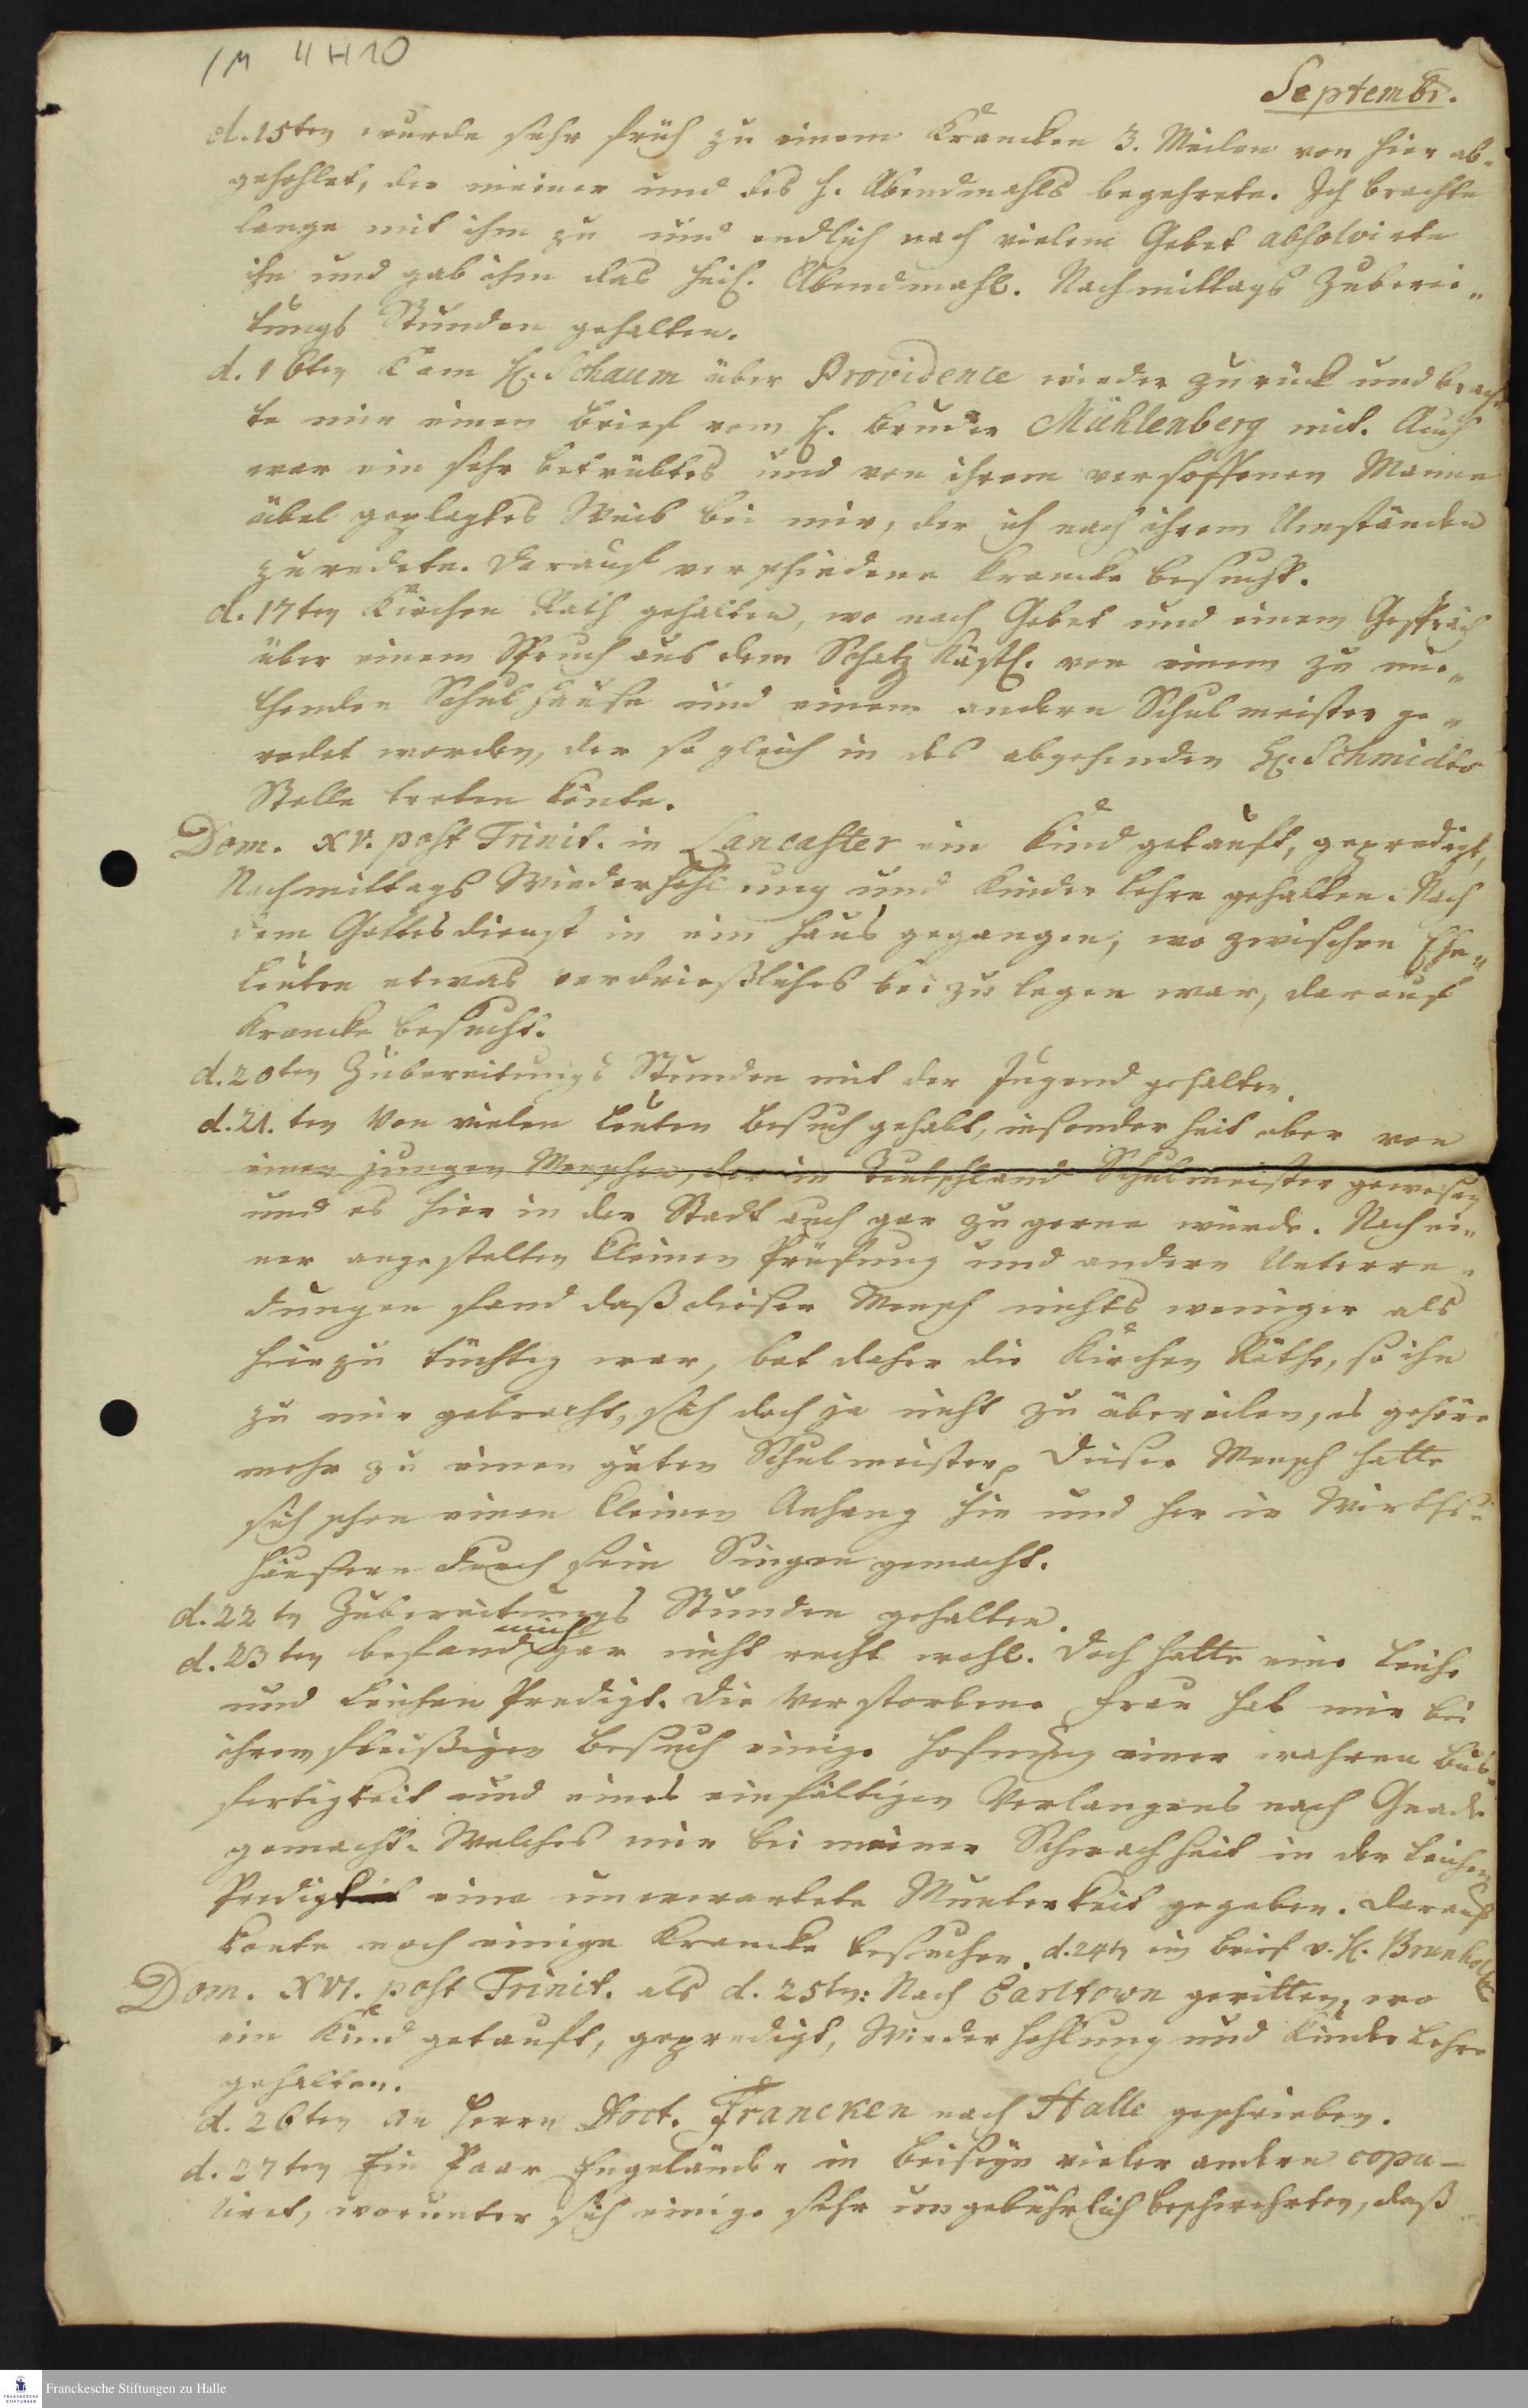 1 M 4 H 10
Septembr.
d. 15ten wurde sehr früh zu einem Krancken 3. Meilen von hier ab-
gehohlet, der meiner und des h. Abendmahls begehrete. Ich brachte
lange mit ihm zu und endlich nach vielem Gebet absolvirte
ihn und gab ihm das heil. Abendmahl. Nachmittags Zuberei-
tungs Stunden gehalten.
d. 16ten kam H. Schaum über Providence wieder zurück und brach-
te mir einen Brief vom H. Bruder Mühlenberg mit. Auch
war ein sehr betrübtes und von ihrem versoffenen Manne
übel geplagtes Weib bei mir, der ich nach ihrem Umständen
zuredete. Darauf verschiedene Krancke besucht.
d. 17ten Kirchen Rath gehalten, wo nach Gebet und einem Gespräch
über einem Spruch aus dem Schatz Kästl. von einem zu mie-
thenden Schul Hause und einem andern Schulmeister ge-
redet worden, der so gleich in des abgehenden H. Schmidts
Stelle treten könte.
Dom. XV. post Trinit. in Lancaster ein Kind getauft, gepredigt,
Nachmittags Wiederhohlung und Kinder Lehre gehalten. Nach
dem Gottesdienst in ein Haus gegangen, wo zwischen Ehe-
leuten etwas verdrießliches bei zu legen war, darauf
Krancke besucht.
d. 20ten Zubereitungs Stunden mit der Jugend gehalten.
d. 21.ten Von vielen Leuten Besuch gehabt, insonderheit aber von
einen jungen Menschen, der in Teutschland Schulmeister gewesen
und es hier in der Stadt auch gar zu gerne würde. Nach ei-
ner angestelten kleinen Prüfung und andern Unterre-
dungen fand daß dieser Mensch nichts weniger als
hierzu tüchtig war, bat daher die Kirchen Räthe, so ihn
zu mir gebracht, sich doch ja nicht zu übereilen, es gehöre
mehr zu einen guten Schulmeister. Dieser Mensch hatte
sich schon einen kleinen Anhang hin und her in Wirths-
häusern durch sein Singen gemacht.
d. 22tn Zubereitungs Stunden gehalten.
d. 23ten befand mich gar nicht recht wohl. Doch hatte eine Leiche
und Leichen Predigt. Die Verstorbene Frau hat mir bei
ihrem fleißigen Besuch einige Hofnung einer wahren Buß-
fertigkeit und eines einfältigen Verlangens nach Gnade
gemacht. Welches mir bei meiner Schwachheit in der Leichen
Predigt eine unerwartete Munterkeit gegeben. Darauf
konte noch einige Krancke besuchen. d. 24tn ein Brief v. H. Brunholtz
Dom. XVI. post Trinit. als d. 25tn: Nach Earltown geritten, wo
ein Kind getauft, gepredigt, Wiederhohlung und Kinder Lehre
gehalten.
d. 26ten An Herrn Doct. Francken nach Halle geschrieben.
d. 27ten Ein Paar Engeländer in Beiseyn vieler andern copu-
liret, worunter sich einige sehr ungebührlich beschwehrten, daß
Franckesche Stiftungen zu Halle